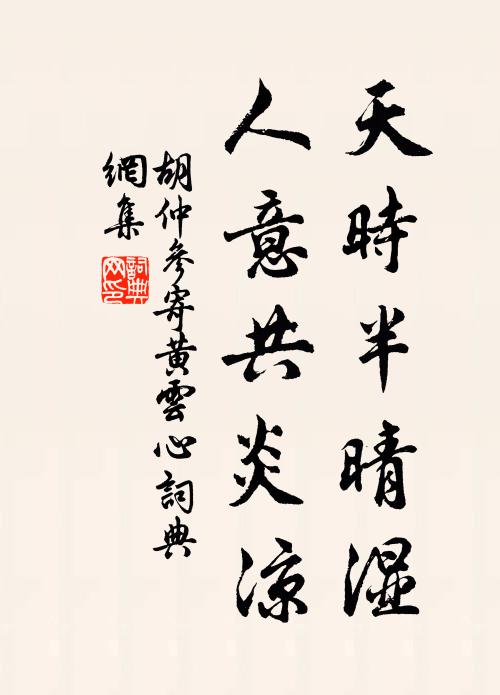 天時半晴湿
人意共炎凉
胡仲參寄黃雲心詞典
網集
詞典網印